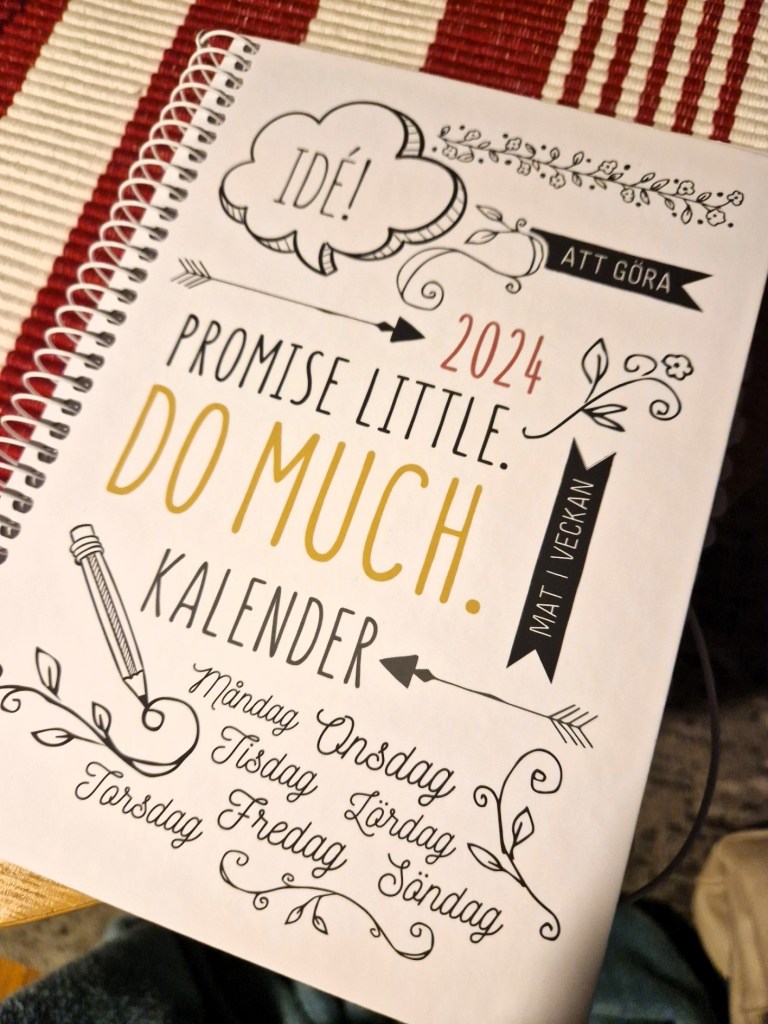 IDÉ!
ATT GÖRA
2024
PROMISE LITTLE.
DO MUCH.
MAT I VECKAN
KALENDER
Måndag
Onsdag
Tisdag
Lördag
Torsdag
Fredag
Söndag